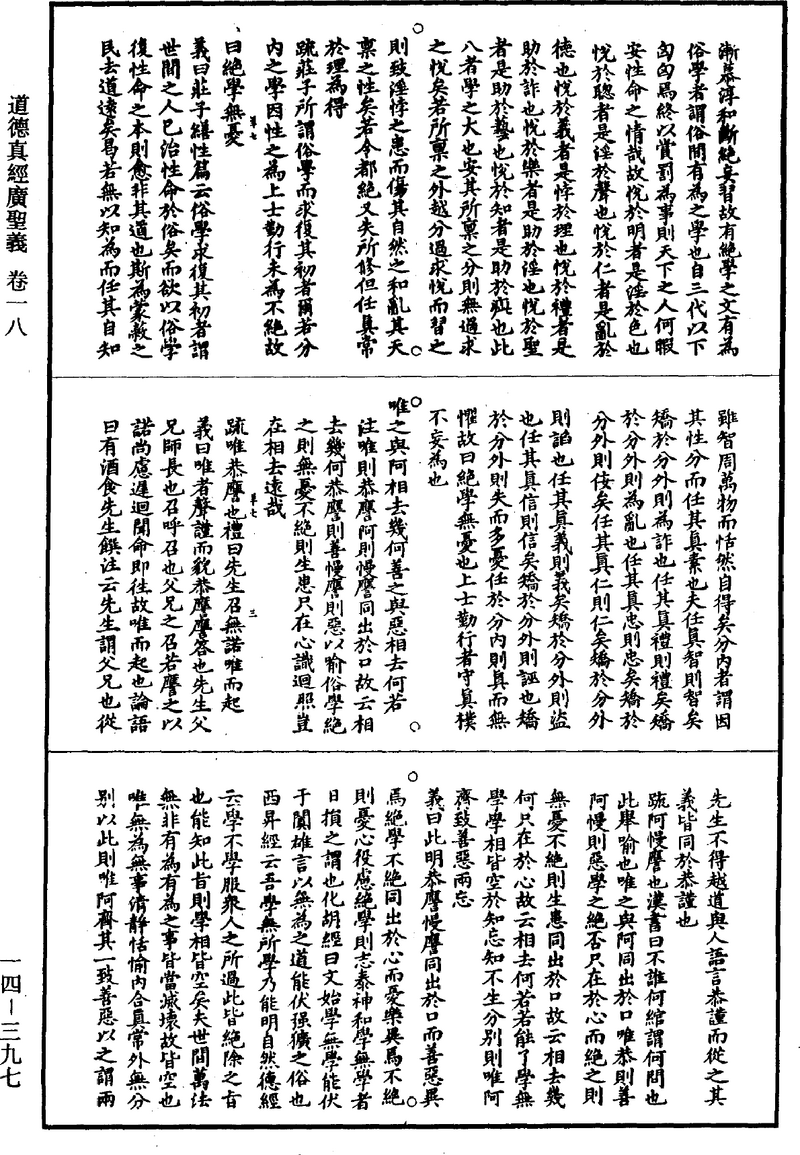 道德真經廣聖義 卷一八
漸慕淳和斷絕妄習故有絕學之文有為
俗學者謂俗間有為之學也自三代以下
匈匈焉終以賞罰為事則天下之人何暇
安性命之情哉故悅於明者是淫於色也
悅於聰者是淫於聲也悅於仁者是亂於
德也悅於義者是悖於理也悅於禮者是
助於詐也悅於樂者是助於淫也悅於聖
者是助於藝也悅於知者是助於疵也此
八者學之大也安其所稟之分則無過求
之悅矣若所稟之外越分過求悅而習之
則致淫悖之患而傷其自然之和亂其天
稟之性矣若令都絕又失所修但任真常
於理為得
疏莊子所謂俗學而求復其初者爾若分
內之學因性之為上士勤行未為不絕故
曰絕學無憂
義曰莊子繕性篇云俗學求復其初者謂
世間之人已治性命於俗矣而欲以俗學
復性命之本則愈非其道也斯為蒙蔽之
民去道遠矣曷若無以知為而任其自知
雖智周萬物而恬然自得矣分內者謂因
其性分而任其真素也夫任真智則智矣
矯於分外則為詐也任其真禮則禮矣矯
於分外則為亂也任其真忠則忠矣矯於
分外則佞矣任其真仁則仁矣矯於分外
則諂也任其真義則義矣矯於分外則盜
也任其真信則信矣矯於分外則誣也矯
於分外則失而多憂任於分內則真而無
懼故曰絕學無憂也上士勤行者守真樸
不妄為也
唯之與阿相去幾何善之與惡相去何若
注唯則恭譍阿則慢譍同出於口故云相
去幾何恭譍則善慢譍則惡以喻俗學絕
之則無憂不絕則生患只在心識迴照豈
在相去遠哉
疏唯恭譍也禮曰先生召無諾唯而起
義曰唯者聲謹而貌恭譍譍答也先生父
兄師長也召呼召也父兄之召若譍之以
諾尚慮遲迴聞命即往故唯而起也論語
曰有酒食先生饌注云先生謂父兄也從
先生不得越道與人語言恭謹而從之其
義皆同於恭謹也
疏阿慢譍也漢書曰不誰何綰謂何問也
此舉喻也唯之與阿同出於口唯恭則善
阿慢則惡學之絕否只在於心而絕之則
無憂不絕則生患同出於口故云相去幾
何只在於心故云相去何若若能了學無
學學相皆空於知忘知不生分別則唯阿
齊致善惡兩忘
義曰此明恭譍慢譍同出於口而善惡異
焉絕學不絕同出於心而憂樂異焉不絕
則憂心役慮絕學則志泰神和學無學者
日損之謂也化胡經曰文始學無學能伏
于闐雄言以無為之道能伏强獷之俗也
西昇經云吾學無所學乃能明自然德經
云學不學服衆人之所過此皆絕除之旨
也能知此旨則學相皆空矣夫世間萬法
無非有為有為之事皆當滅壞故皆空也
唯無為無事清靜恬愉內合真常外無分
別以此則唯阿齊其一致善惡以之謂兩
一四－三九七